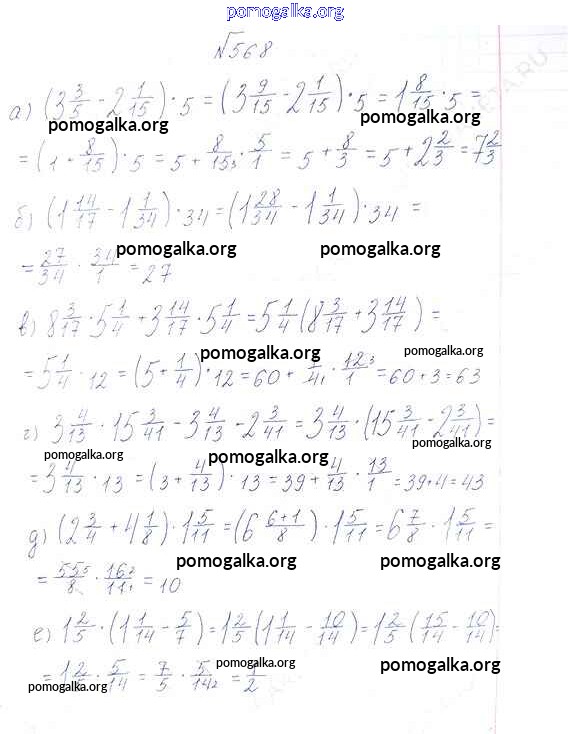 pomogalka.org
√568
а) (3 3/5 - 2 1/15) · 5 = (3 9/15 - 2 1/15) · 5 = 1 8/15 · 5 =
pomogalka.org pomogalka.org
= (1 + 8/15) · 5 = 5 + 8/15 3 · 5/1 = 5 + 8/3 = 5 + 2 2/3 = 7 2/3
б) (1 14/17 - 1 1/34) · 34 = (1 28/34 - 1 1/34) · 34 =
pomogalka.org pomogalka.org
= 27/34 · 34/1 = 27
в) 8 3/17 · 5 1/4 + 3 14/17 · 5 1/4 = 5 1/4 (8 3/17 + 3 14/17) =
pomogalka.org pomogalka.org
= 5 1/4 · 12 = (5 + 1/4) · 12 = 60 + 1/4 1 · 12 3/1 = 60 + 3 = 63
г) 3 4/13 · 15 3/41 - 3 4/13 - 2 3/41 = 3 4/13 · (15 3/41 - 2 3/41) =
pomogalka.org pomogalka.org pomogalka.org
= 3 4/13 · 13 = (3 + 4/13) · 13 = 39 + 4/13 · 13/1 = 39 + 4 = 43
д) (2 3/4 + 4 1/8) · 1 5/11 = (6 6+1/8) · 1 5/11 = 6 7/8 · 1 5/11 =
pomogalka.org pomogalka.org
= 55 5/8 · 16 2/11 1 = 10
е) 1 2/5 · (1 1/14 - 5/7) = 1 2/5 (1 1/14 - 10/14) = 1 2/5 (15/14 - 10/14) =
pomogalka.org pomogalka.org
= 1 2/5 · 5/14 = 7/5 · 5/14 2 = 1/2
pomogalka.org